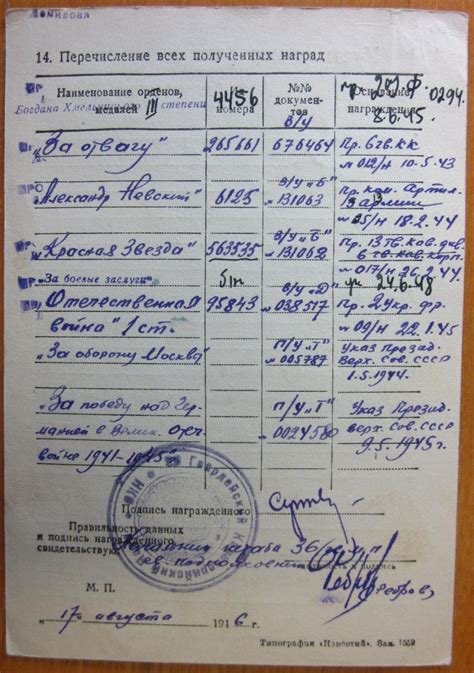 14. Перечисление всех полученных наград
Наименование орденов, медалей
№№ номера
№№ документов
Основание награждения
Богдана Хмельницкого III степени
4456
б/у
пр. 207 Ф. 0294.
8.6.45.
"За отвагу"
265661
676464
Пр. 6 гв. КК
№ 012/н 10.5.43
"Александр Невский"
6125
в/у "Б"
№ 131063
Пр. ком. Артил.
3 армии
18.2.44
"Красная Звезда"
563535
в/у "Б"
№ 131062
Пр. 13 гв. кав. див.
6 гв. кав. корп.
№ 017/н 26.2.44
"За боевые заслуги"
б/н
24.6.48
Отечественная
война" 1 ст.
95843
в/у "Д"
№ 038517
Пр. 2 Укр. фр.
№ 09/н 22.1.45
"За оборону Москвы"
п/у "Т"
№ 005787
Указ Презид.
Верх. Сов. СССР
1.5.1944.
"За победу над Гер-
манией в Велик. отеч.
войне 1941-1945"
п/у "Т"
№ 0024580
Указ Презид.
верх. Сов. СССР
9.5.1945 г.
Подпись награжденного
Правильность данных
и подпись награжденного
свидетельствую:
Начальник штаба 36
гв. подполковник
должность и подпись
Петров
М. П.
„17" августа 1946 г.
Типография «Известий». Зак. 1559